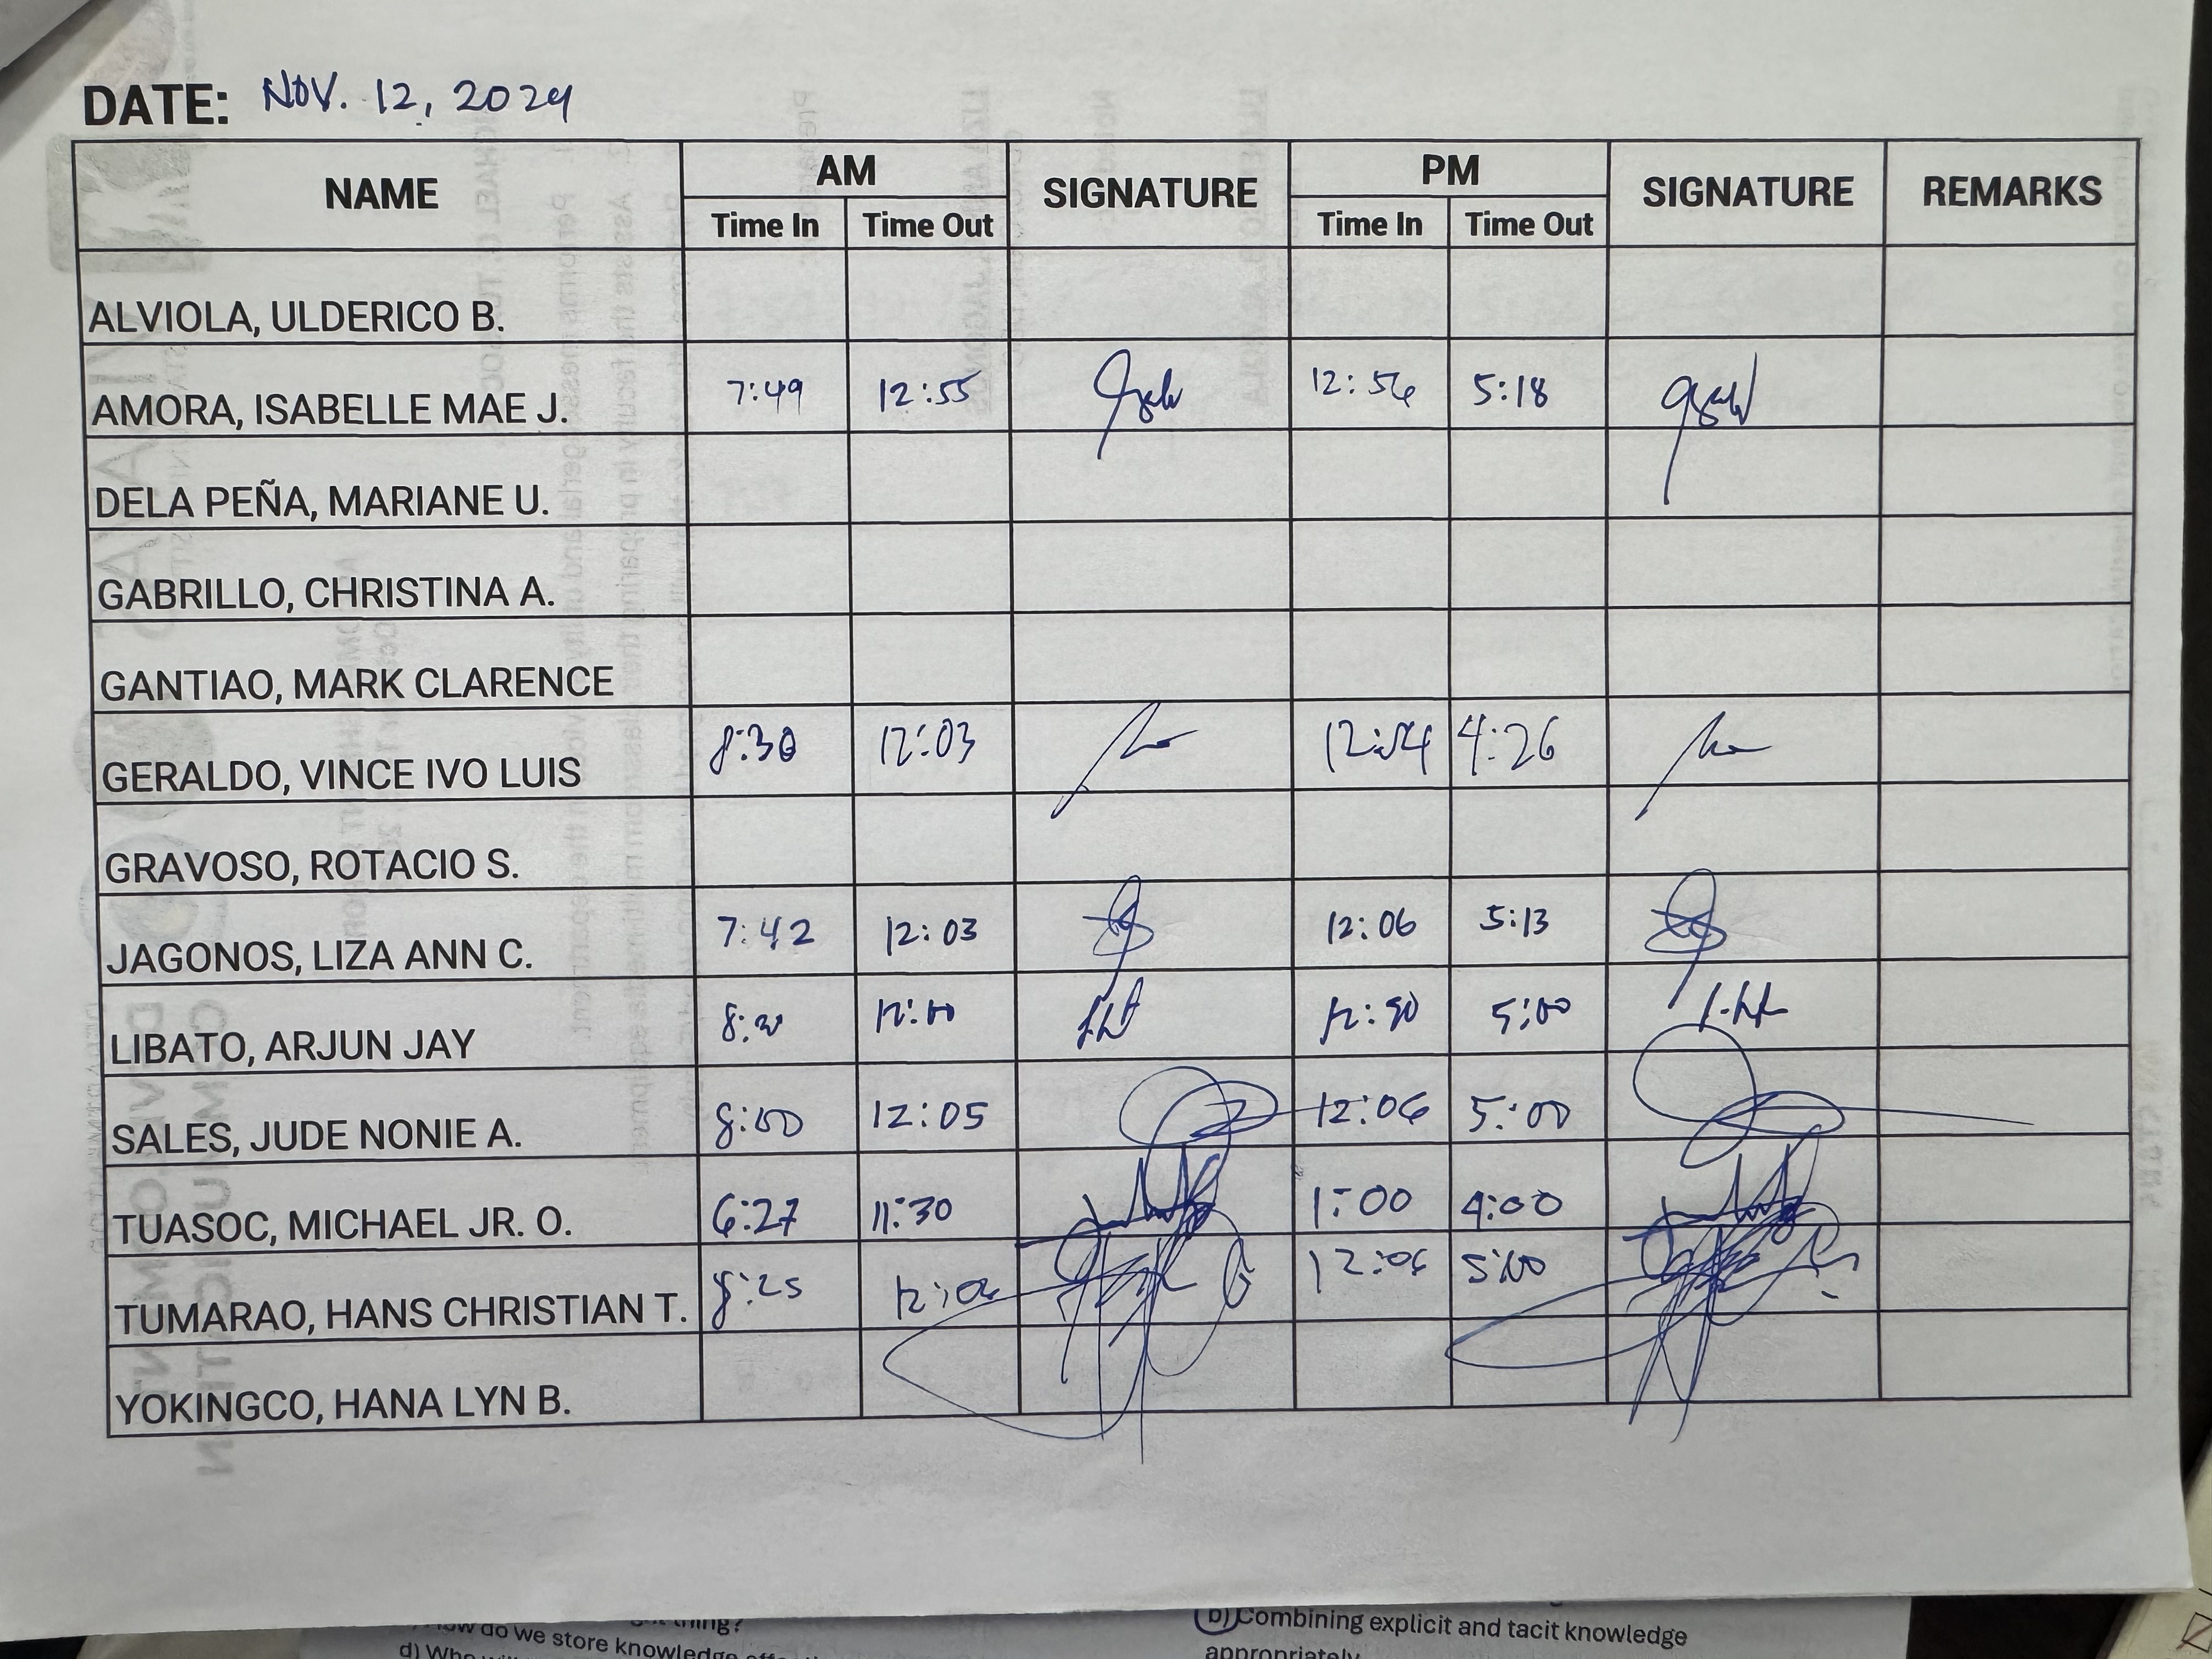 DATE: NOV. 12, 2024
NAME AM SIGNATURE PM SIGNATURE REMARKS
Time In Time Out Time In Time Out
ALVIOLA, ULDERICO B.
AMORA, ISABELLE MAE J. 7:49 12:55 12:56 5:18
DELA PEÑA, MARIANE U.
GABRILLO, CHRISTINA A.
GANTIAO, MARK CLARENCE
GERALDO, VINCE IVO LUIS 8:30 12:03 12:54 4:26
GRAVOSO, ROTACIO S.
JAGONOS, LIZA ANN C. 7:42 12:03 12:06 5:13
LIBATO, ARJUN JAY 12:00 5:00
SALES, JUDE NONIE A. 8:00 12:05 12:06 5:00
TUASOC, MICHAEL JR. O. 6:27 11:30 1:00 4:00
TUMARAO, HANS CHRISTIAN T. 8:25 12:06 12:06 5:00
YOKINGCO, HANA LYN B.
how do we store knowledge
b) Combining explicit and tacit knowledge
appropriately